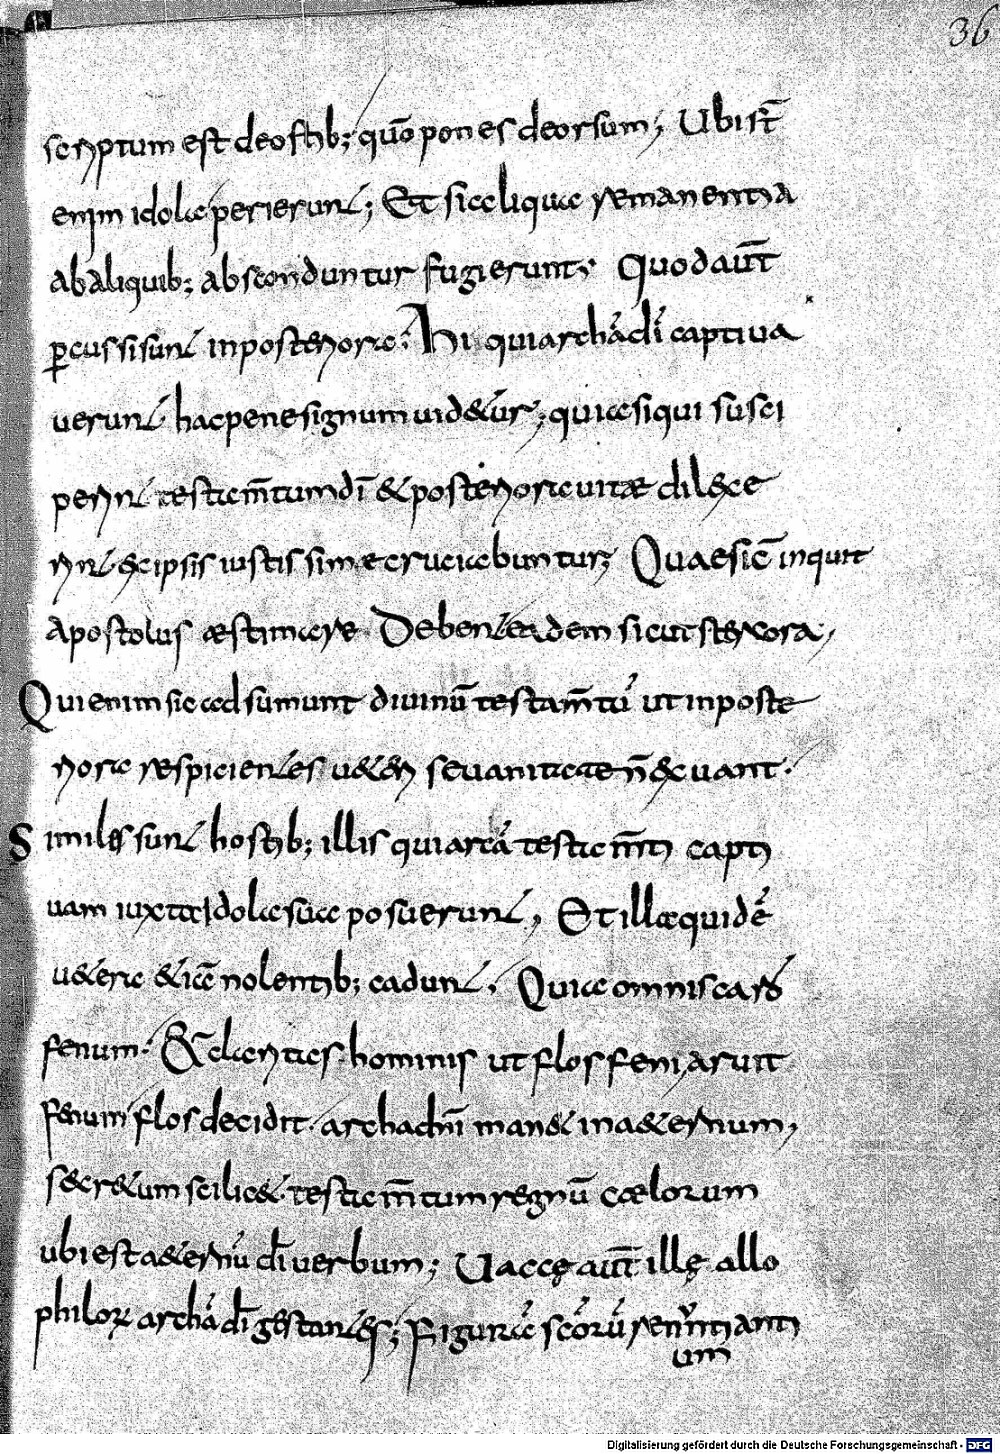 36
scriptum est de ostib; quō pones deorsum; Ubi st̄
enim idola perierunt; Et si aliqua remanentia
ab aliquib; absconduntur fugierunt; Quod aut̄
ꝑcussi sunt in posteriora; Hi qui archā di captiva
verunt hac pene signum uid&ur; quia siqui susci
perint testam̄tum dī & posteriora uitae dil&a
rint ex ipsis iustissime cruciabuntur; Quae sic̄ inquit
Apostolus aestimare Debent eadem sicut stercora;
Qui enim sic adsumunt divinū testam̄tū ut in poste
riora respicientes u&eri se vanitate n̄ exuant.
Similes sunt hostib; illis qui arcā testam̄ti capti
uam iuxta Idola sua posuerunt; Et illa quidē
u&era &iā nolentib; cadunt; Quia omnis caro
fenum. & claritas hominis ut flos feni, aruit
fenum flos decidit. archa dn̄i man& in a&ernum,
secr&um scilic& testam̄tum regnū caelorum
ubi est a&ernū di verbum; Uaccę aut̄ illę allo
philor archā di gestantes; Figurā scōrū renuntianti
um
Digitalisierung gefördert durch die Deutsche Forschungsgemeinschaft - DFG